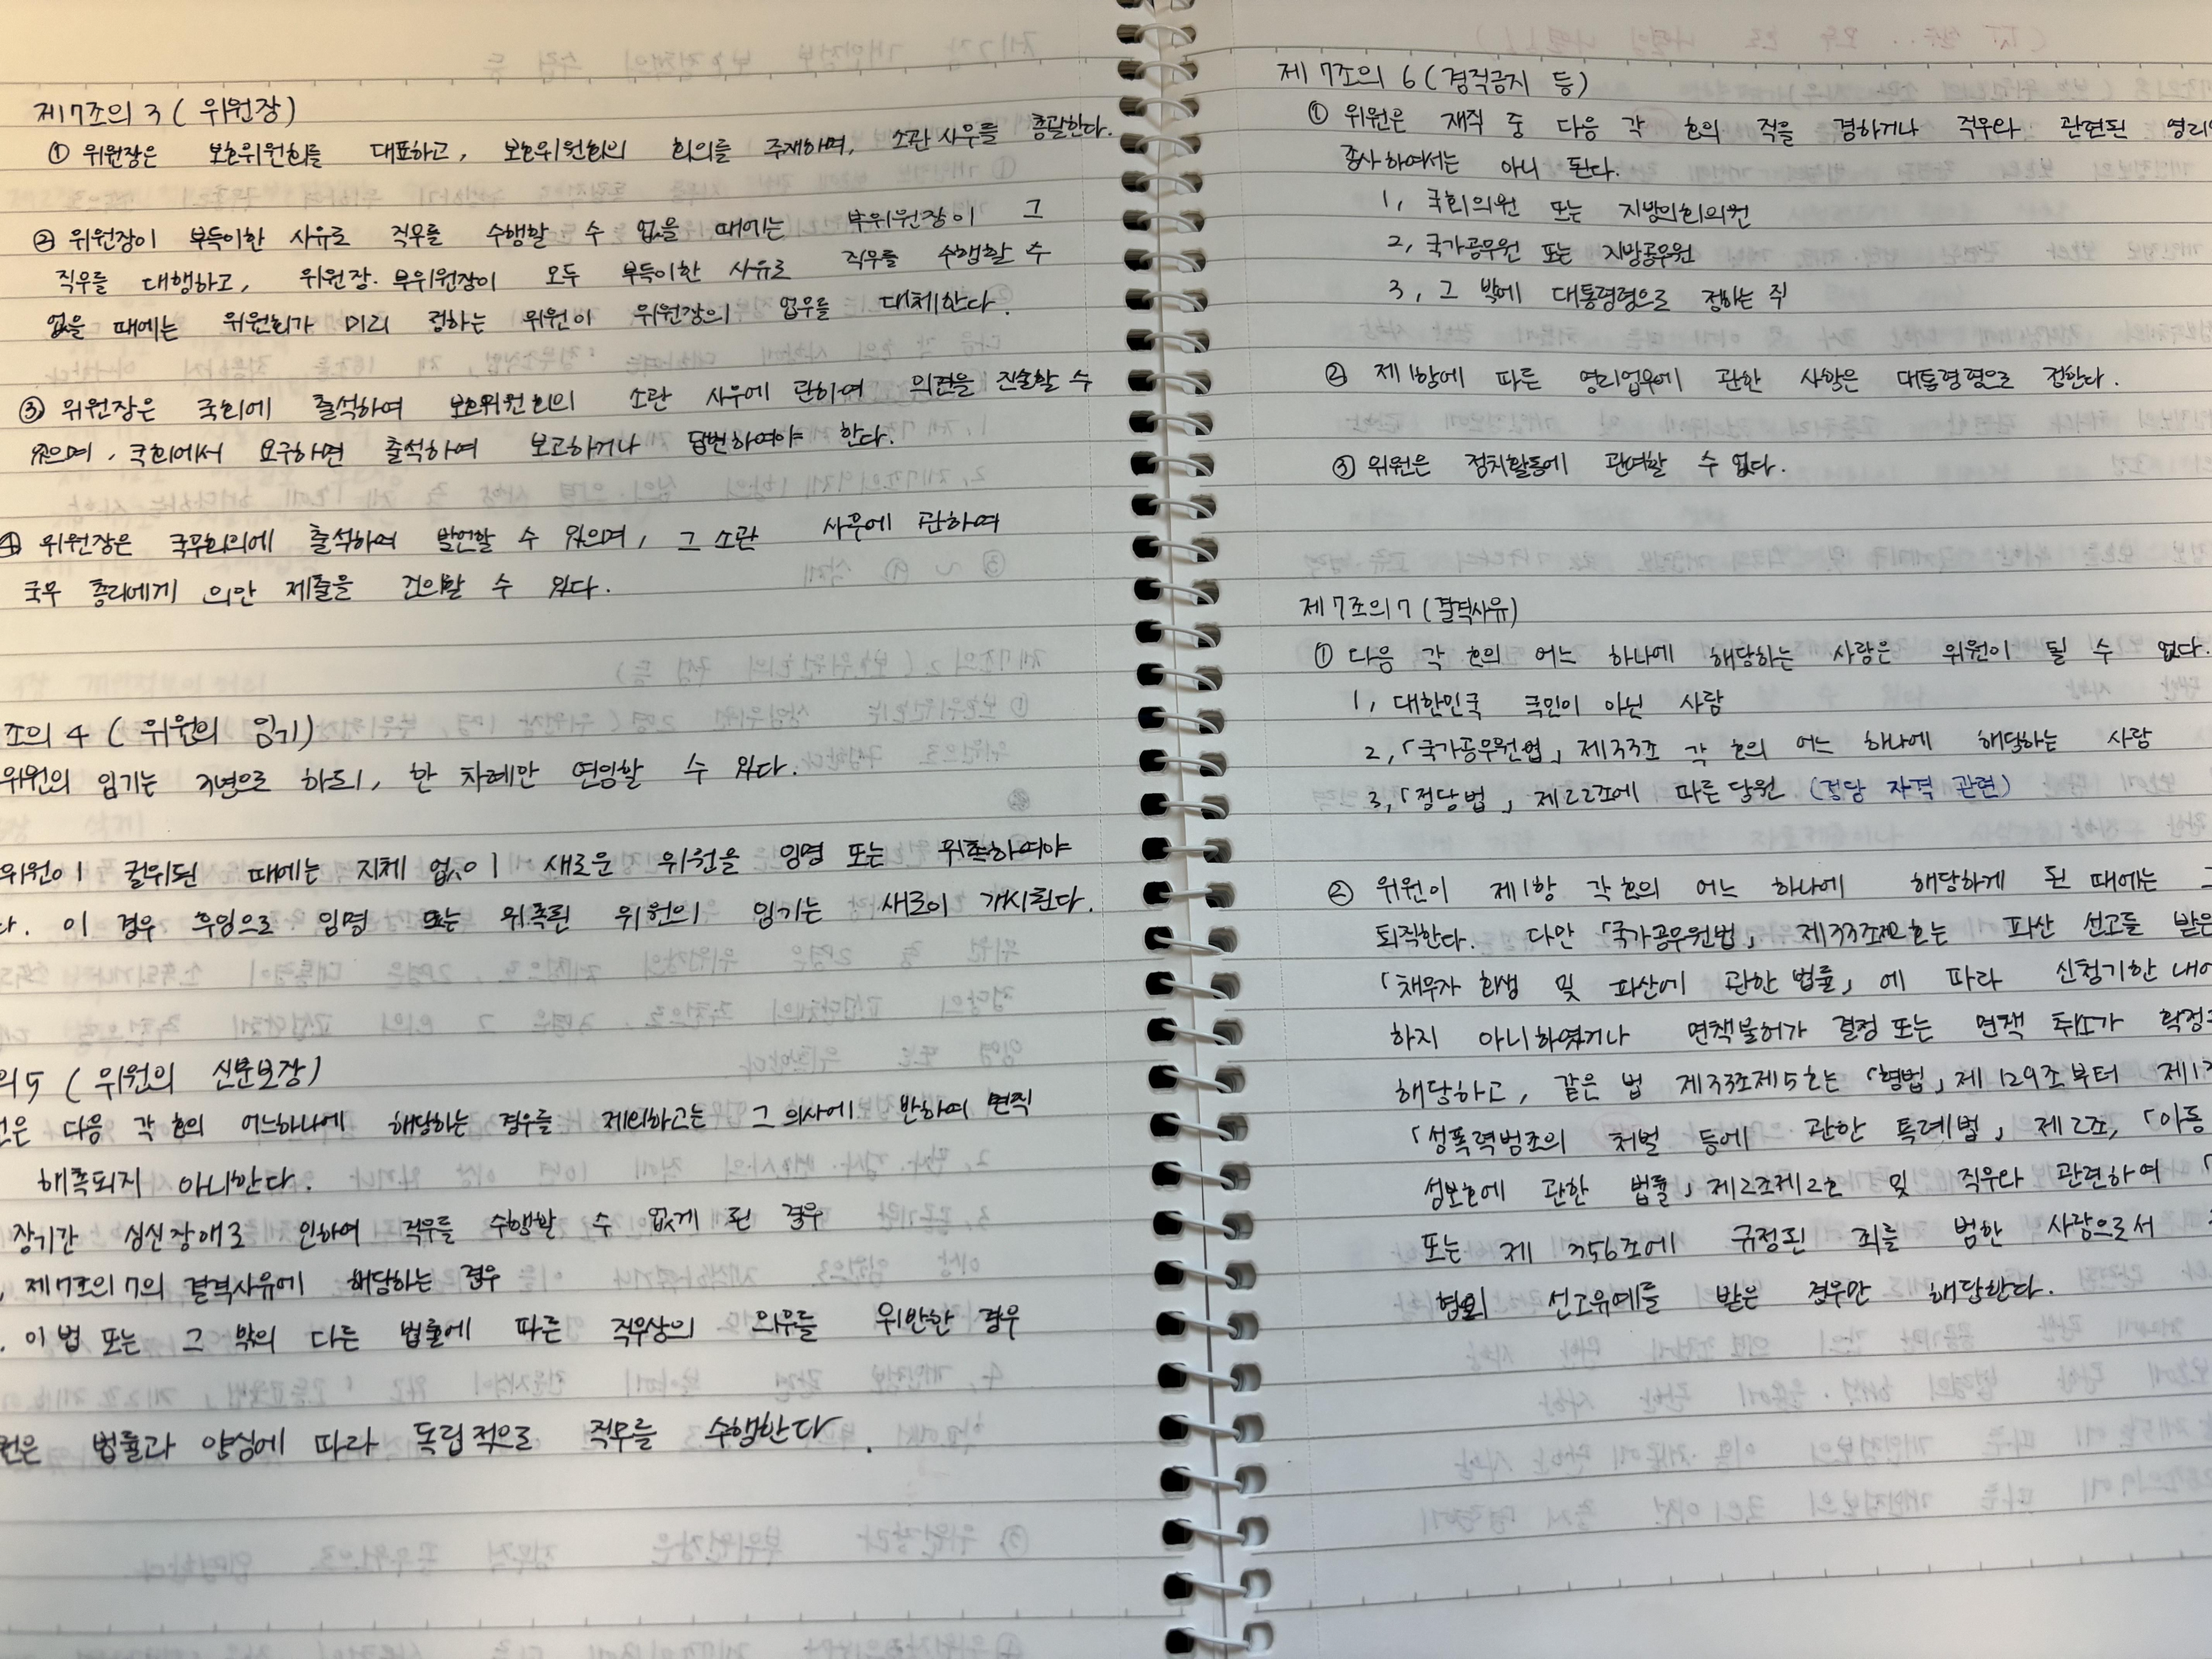 제7조의 3 ( 위원장 )
① 위원장은 보호위원회를 대표하고, 보호위원회의 회의를 주재하며, 소관 사무를 총괄한다.
② 위원장이 부득이한 사유로 직무를 수행할 수 없을 때에는 부위원장이 그
직무를 대행하고, 위원장·부위원장이 모두 부득이한 사유로 직무를 수행할 수
없을 때에는 위원회가 미리 정하는 위원이 위원장의 업무를 대체한다.
③ 위원장은 국회에 출석하여 보호위원회의 소관 사무에 관하여 의견을 진술할 수
있으며, 국회에서 요구하면 출석하여 보고하거나 답변하여야 한다.
④ 위원장은 국무회의에 출석하여 발언할 수 있으며, 그 소관 사무에 관하여
국무 총리에게 의안 제출을 건의할 수 있다.
조의 4 ( 위원의 임기)
위원의 임기는 3년으로 하되, 한 차례만 연임할 수 있다.
위원이 궐위된 때에는 지체 없이 새로운 위원을 임명 또는 위촉하여야
다. 이 경우 후임으로 임명 또는 위촉된 위원의 임기는 새로이 개시된다.
의5 ( 위원의 신분보장)
원은 다음 각 호의 어느하나에 해당하는 경우를 제외하고는 그 의사에 반하여 면직
해촉되지 아니한다.
장기간 심신장애로 인하여 직무를 수행할 수 없게 된 경우
, 제7조의7의 결격사유에 해당하는 경우
. 이 법 또는 그 밖의 다른 법률에 따른 직무상의 의무를 위반한 경우
원은 법률과 양심에 따라 독립적으로 직무를 수행한다.
제7조의 6 (겸직금지 등)
① 위원은 재직 중 다음 각 호의 직을 겸하거나 직무와 관련된 영리
종사하여서는 아니 된다.
1, 국회의원 또는 지방의회의원
2, 국가공무원 또는 지방공무원
3, 그 밖에 대통령령으로 정하는 직
② 제1항에 따른 영리업무에 관한 사항은 대통령령으로 정한다.
③ 위원은 정치활동에 관여할 수 없다.
제7조의7 (결격사유)
① 다음 각 호의 어느 하나에 해당하는 사람은 위원이 될 수 없다.
1, 대한민국 국민이 아닌 사람
2,「국가공무원법」제33조 각 호의 어느 하나에 해당하는 사람
3,「정당법」제22조에 따른 당원 (정당 자격 관련)
② 위원이 제1항 각 호의 어느 하나에 해당하게 된 때에는 그
퇴직한다. 다만「국가공무원법」제33조제2호는 파산 선고를 받은
「채무자 회생 및 파산에 관한 법률」에 따라 신청기한 내에
하지 아니하였거나 면책불허가 결정 또는 면책 취소가 확정
해당하고, 같은 법 제33조제5호는「형법」제129조부터 제13
「성폭력범죄의 처벌 등에 관한 특례법」제2조,「아동
성보호에 관한 법률」제2조제2호 및 직무와 관련하여「
또는 제 356조에 규정된 죄를 범한 사람으로서
형의 선고유예를 받은 경우만 해당한다.